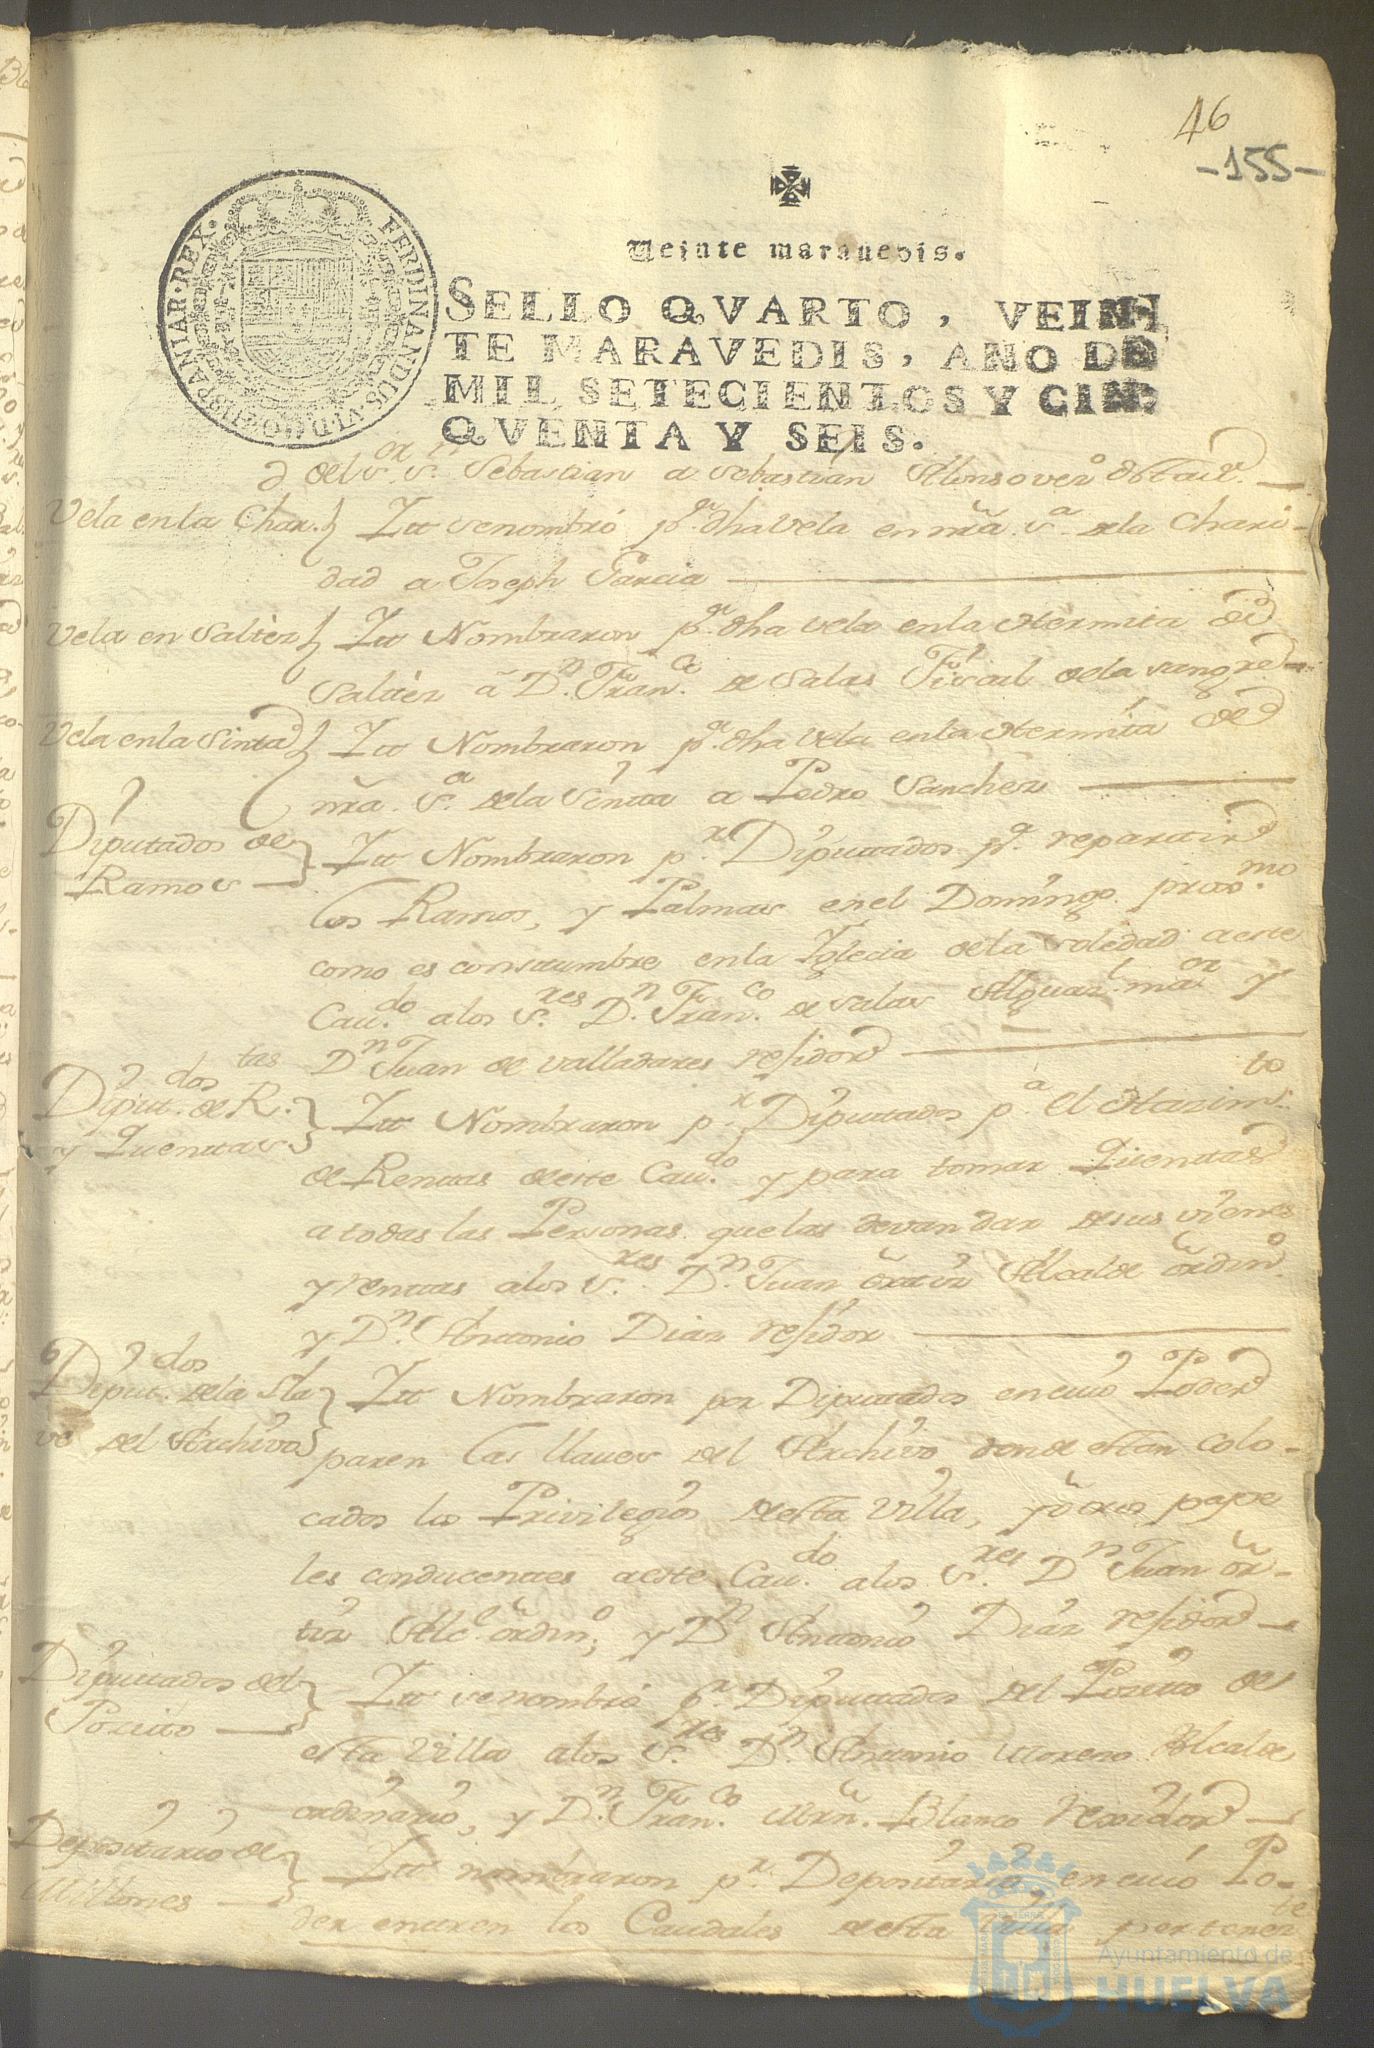 46
-155-
Veinte maravedis.
FERDINANDUS·VI·D·G·HISPANIAR·REX·
SELLO QVARTO, VEIN-
TE MARAVEDIS, AÑO DE
MIL SETECIENTOS Y CIN-
QVENTA Y SEIS.
del Sor Sn Sebastian a Sebastian Alonso
Vela en la Char.d Itt se nombró pa dha Vela en nra. Sa. de la Chari-
dad a Joseph Garcia
Vela en Saltés Itt Nombraron pa dha vela en la Hermita de
Saltés a Dn. Franco. de Salas Fiscal de la sangre
Vela en la Sinta Itt Nombraron pa dha Vela en la Hermita de
nra. Sa. de la Sintta a Pedro Sanches
Diputados de Itt Nombraron pr Diputtados pa. repartir
Ramos
los Ramos, y Palmas en el Domingo proxmo
como es constumbre en la Iglecia de la Soledad a este
Cavdo. a los Sres. Dn. Franco. de Salas Alguazl. maor y
Dn Juan de valladares residor
Diputdos de Rtas Itt Nombraron pr Diputtados pa el Hazimto
y Quenttas
de Renttas de este Cavdo. y para tomar Quenttas
a todas las Personas que las devan dar de sus vienes
y renttas a los Sres. Dn. Juan órtiz Alcalde órdino.
y Dn. Anttonio Diaz residor
Diputdos de la Lla Itt Nombraron por Diputtados en cuio Poder
ve del Archivo
paren las llaves del Archivo donde estan colo-
cados los Privilegios de esta Villa, y ótros pape
les conducenttes a este Cavdo. a los Sres. Dn Juan ór-
tiz Alce. órdino, y Dn Anttonio Diaz residor
Diputtados del Itt se nombró pr. Diputtados del Pozitto de
Pozitto
esta Villa a los Sres. Dn. Anttonio Moreno Alcalde
ordinario, y Dn. Franco. Mrn. Blanco rexidor
Depositario de Itt nombraron pr. Depositario en cuio Po-
Millones
der entren los Caudales de esta Villa pertenezte
Ayuntamiento de
HUELVA